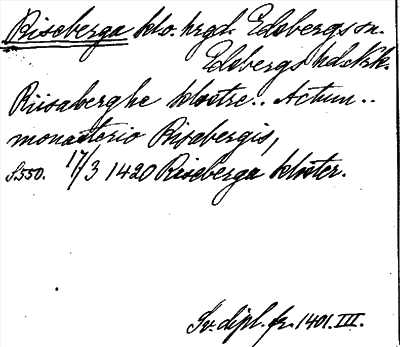 Riseberga klo. hrgd. Edsbergs sn.
Edsbergs hd. Nrk.
Riisaberghe klostre.. Actum..
monasterio Risabergis,
S.550. 17/3 1420 Riseberga kloster.
Sv. dipl. fr. 1401. III.